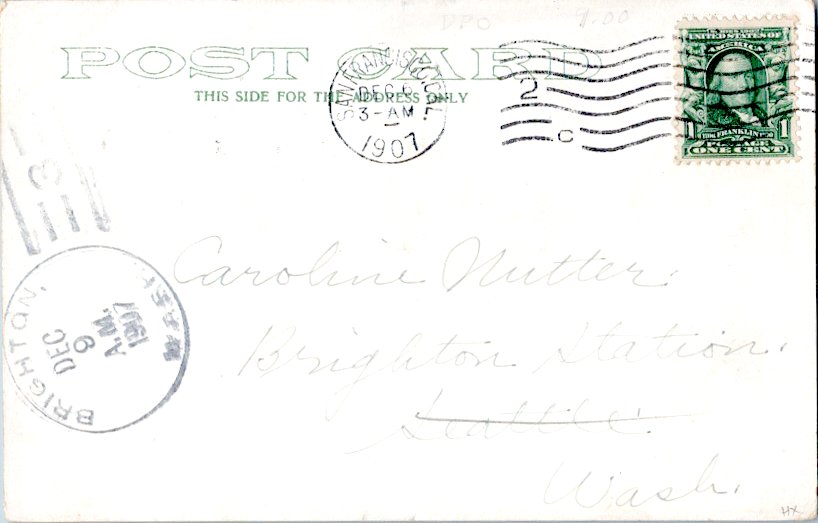 DPO 9.00
POST CARD
THIS SIDE FOR THE ADDRESS ONLY
SAN FRANCISCO, CAL.
DEC 6
3-AM
1907
2
C
UNITED STATES OF
AMERICA
1 FRANKLIN 1
POSTAGE
ONE CENT
3
BRIGHTON, WASH.
DEC
9
A.M.
1907
Caroline Nutter.
Brighton Station.
Seattle.
Wash.
HX